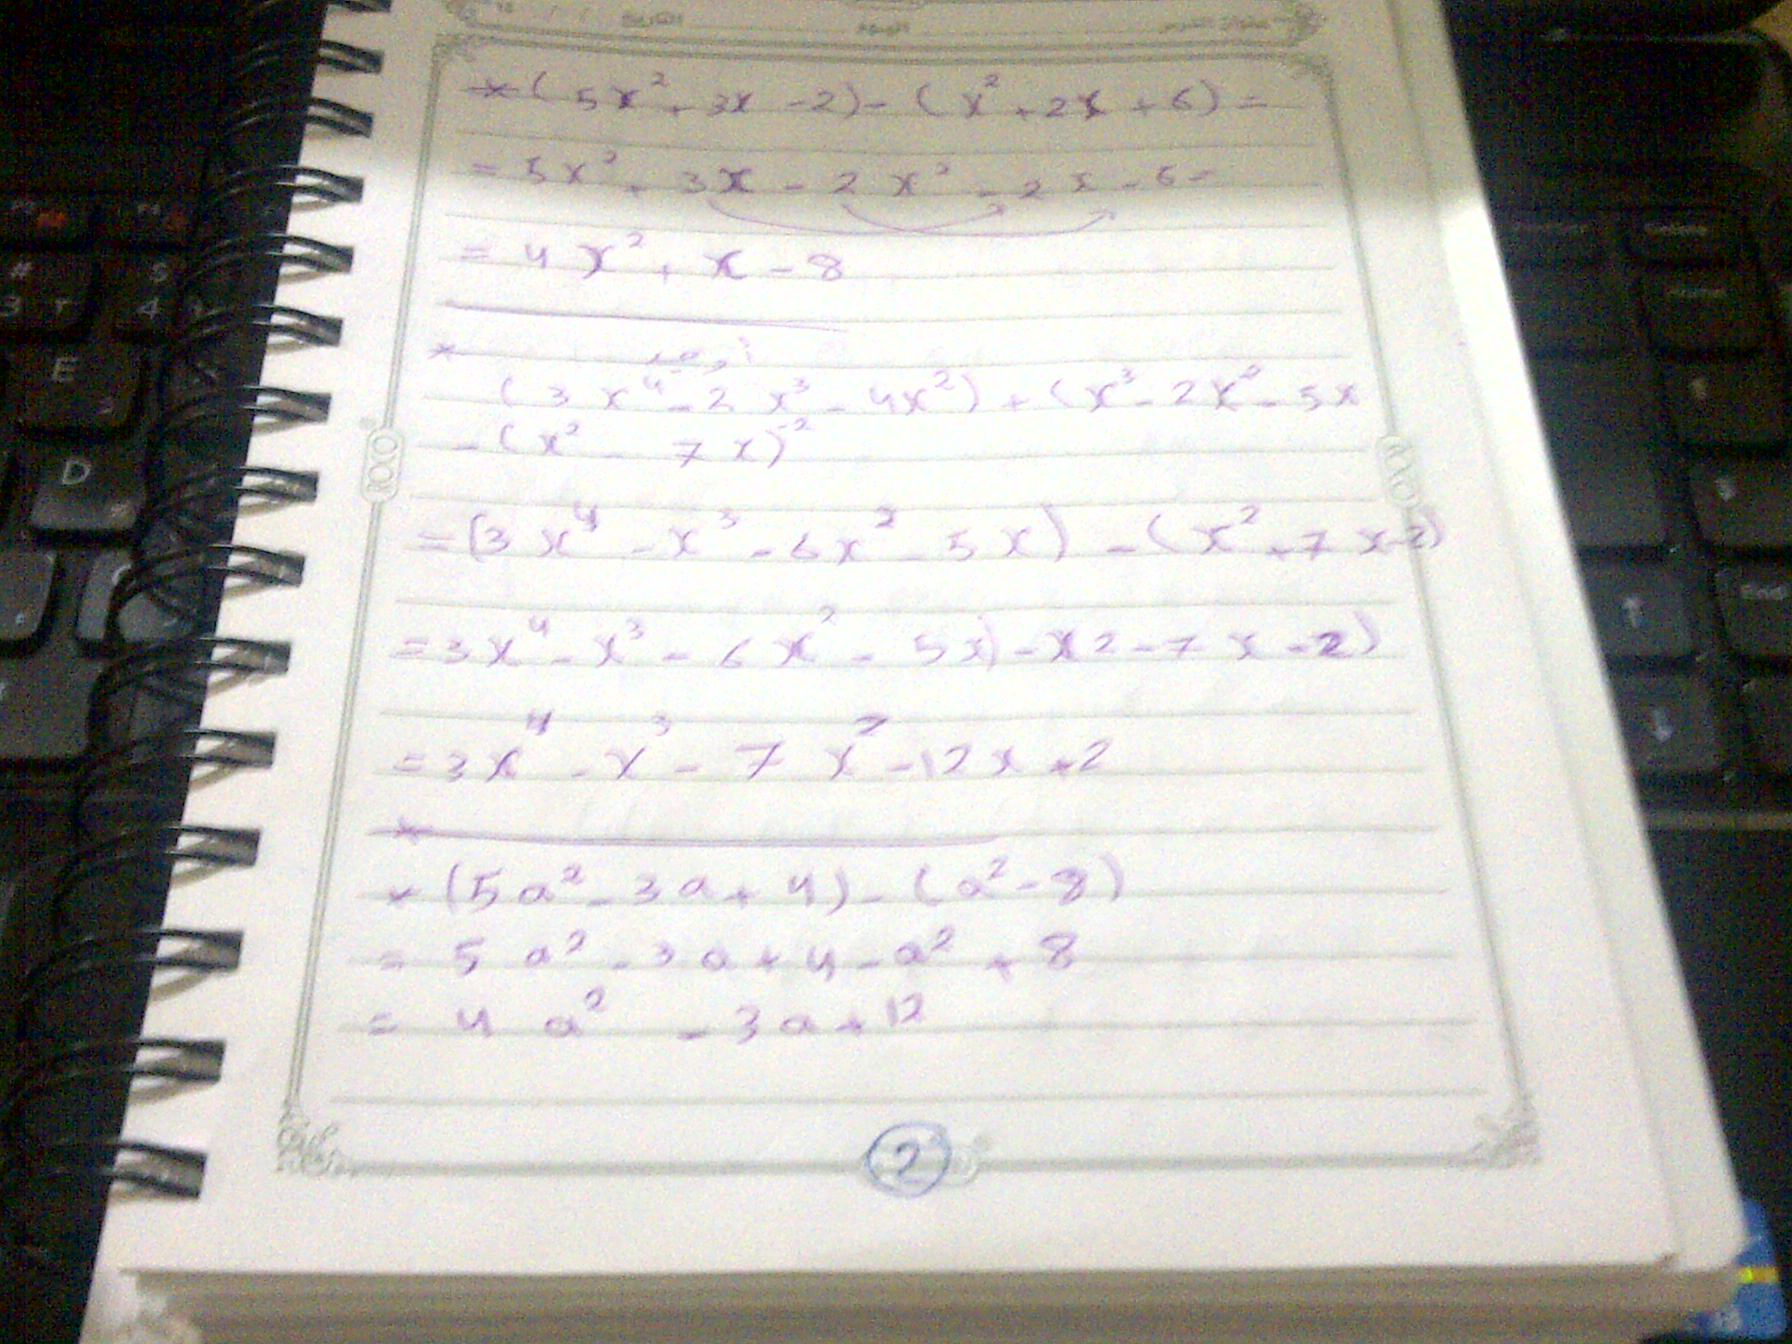 * (5x² + 3x - 2) - (x² + 2x + 6) =
= 5x² + 3x - 2 x² - 2x - 6 =
= 4x² + x - 8
*
(3x⁴ - 2x³ - 4x²) + (x³ - 2x² - 5x
- (x² - 7x)⁻²
= (3x⁴ - x³ - 6x² - 5x) - (x² + 7x - 2)
= 3x⁴ - x³ - 6x² - 5x) - x2 - 7x - 2)
= 3x⁴ - x³ - 7x² - 12x + 2
*
* (5a² - 3a + 4) - (a² - 8)
= 5a² - 3a + 4 - a² + 8
= 4a² - 3a + 12
2
E
D
3
4